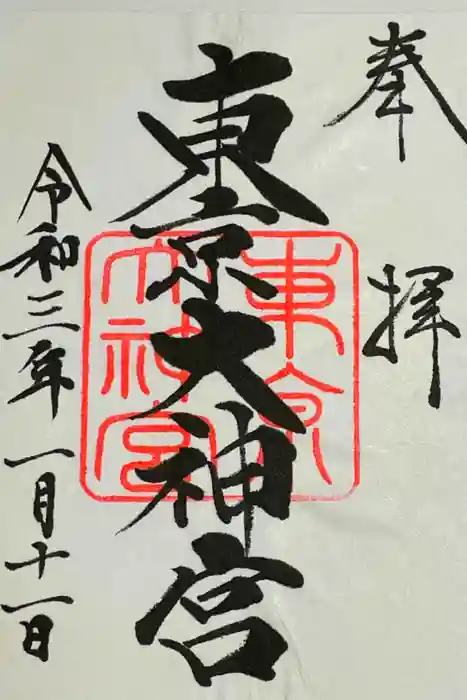 奉拝
東京大神宮
東京大神宮
令和三年一月十一日